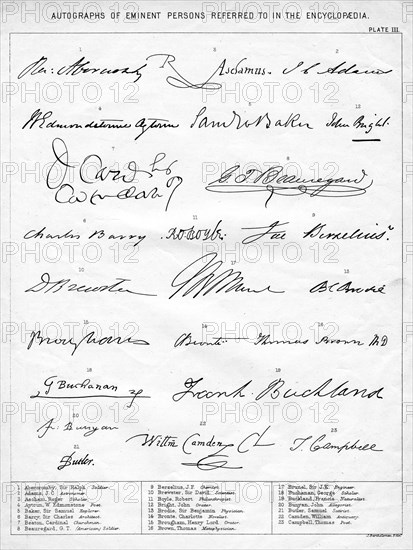 AUTOGRAPHS OF EMINENT PERSONS REFERRED TO IN THE ENCYCLOPÆDIA.
PLATE III.
R. Aschamus. J C Adams
W Edmondstoune Aytoun Sam W Baker John Bright.
G T Beauregard
Charles Barry RO BOYLE. Jac Berzelius.
D Brewster B C Brodie
Brougham CBrontë Thomas Brown M D
G Buchanan Frank Buckland
J. Bunyan
Butler. Willm Camden Cl T. Campbell
1 Abercromby, Sir Ralph, Soldier
2 Adams, J.C. Astronomer
3 Ascham, Roger Scholar
4 Aytoun, W. Edmonstoune Poet
5 Baker, Sir Samuel Explorer
6 Barry, Sir Charles Architect
7 Beaton, Cardinal Churchman
8 Beauregard, G. T. (American) Soldier
9 Berzelius, J.F. Chemist
10 Brewster, Sir David, Scientist
11 Boyle, Robert Philosopher
12 Bright, John Orator
13 Brodie, Sir Benjamin Physician
14 Bronte, Charlotte Novelist
15 Brougham, Henry Lord Orator
16 Brown, Thomas Metaphysician
17 Brunel, Sir I.K. Engineer
18 Buchanan, George Scholar
19 Buckland, Francis Naturalist
20 Bunyan, John Allegorist
21 Butler, Samuel Satirist
22 Camden, William Antiquary
23 Campbell, Thomas Poet
PHOTO12